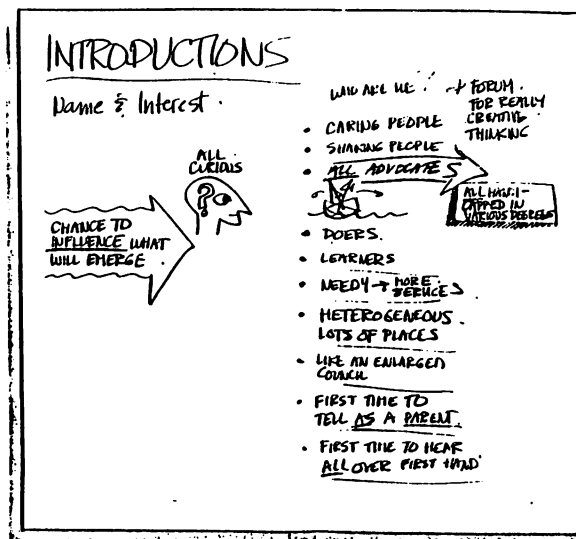 INTRODUCTIONS
Name & Interest.
ALL
CURIOUS
?
CHANCE TO
INFLUENCE WHAT
WILL EMERGE.
WHO ARE WE? → FORUM.
FOR REALLY
CREATIVE
THINKING
• CARING PEOPLE
• SHARING PEOPLE
• ALL ADVOCATES
ALL HANDI-
CAPPED IN
VARIOUS DEGREES
• DOERS.
• LEARNERS
• NEEDY → MORE
SERVICES
• HETEROGENEOUS.
LOTS OF PLACES
• LIKE AN ENLARGED
COUNCIL
• FIRST TIME TO
TELL AS A PARENT.
• FIRST TIME TO HEAR
ALL OVER FIRST HAND